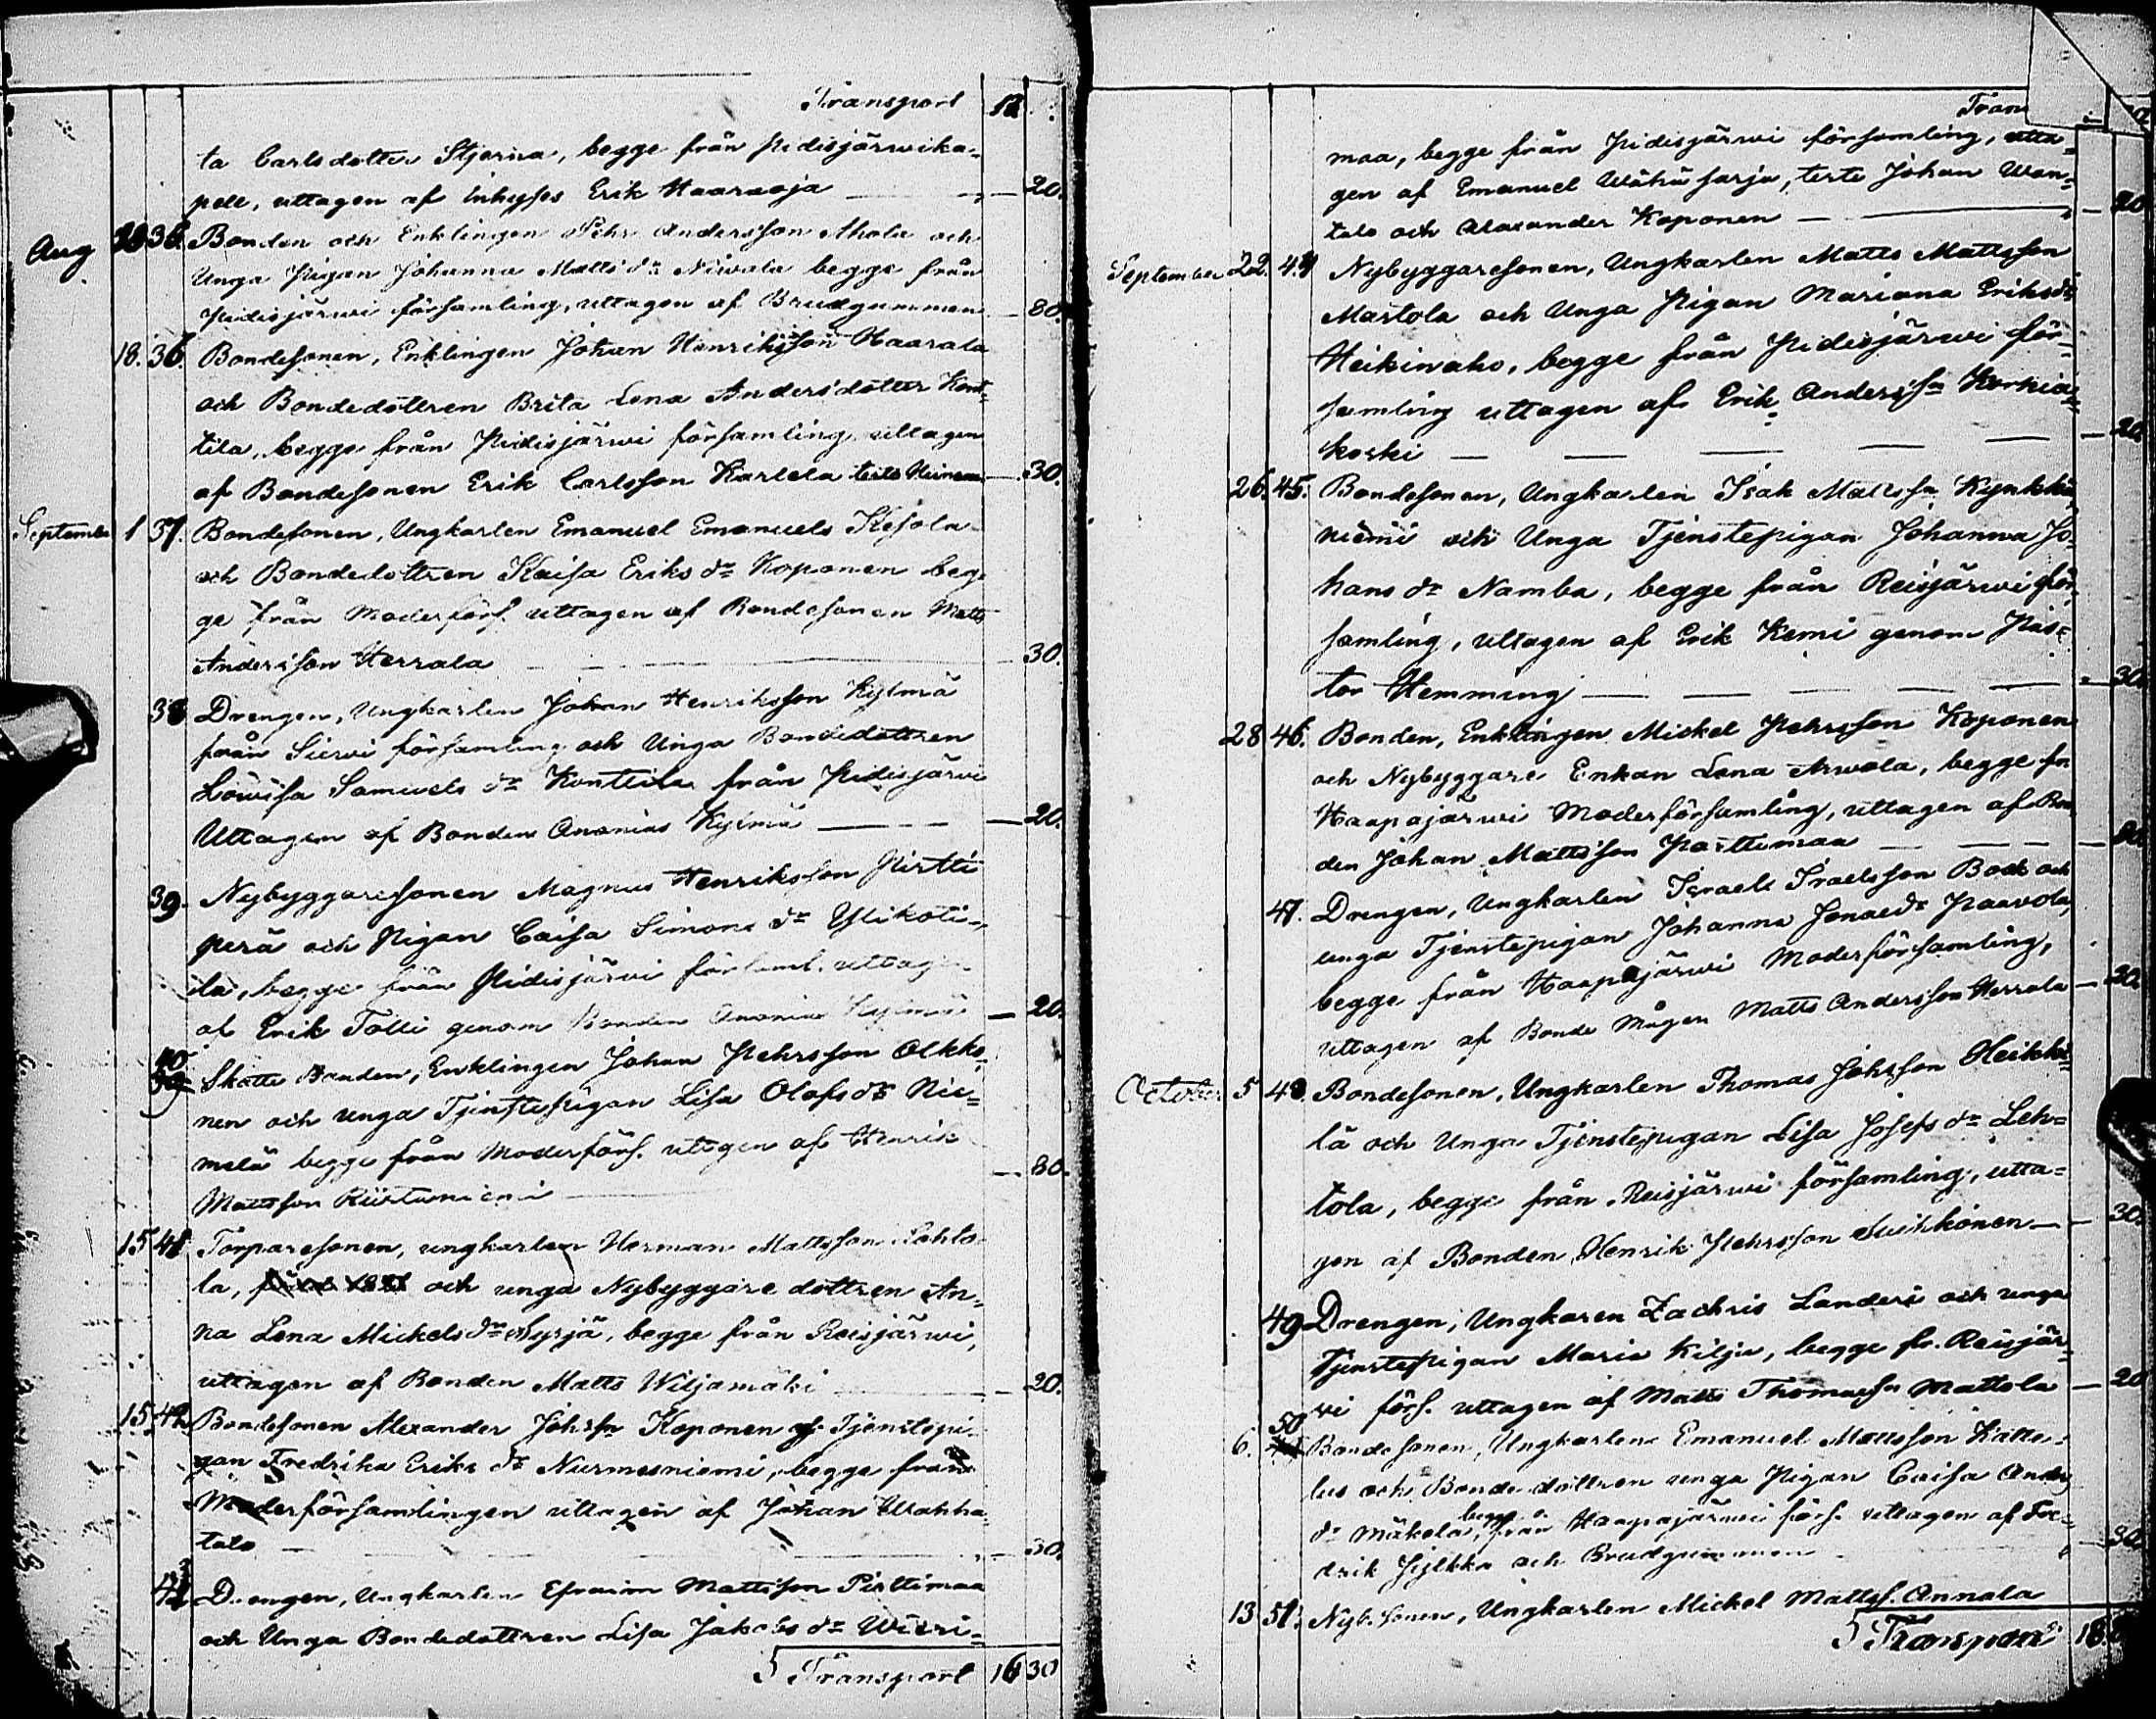 Transport 12
ta Carlsdotter Stjerna, begge från Pidisjärwi ka-
pell, uttagen af Inhyses Erik Haaraoja — 20.
Aug 35. Bonden och Enklingen Pehr Andersson Ahola och
Unga Pigan Johanna Matts dr Niwala begge från
Pidisjärwi församling, uttagen af Brudgummen 80.
18. 36. Bondesonen, Enklingen Johan Henriksson Haarala
och Bondedottren Brita Lena Andersdotter Kont-
tila, begge från Pidisjärwi församling uttagen
af Bondesonen Erik Carlsson Karlela 30.
September 1 37. Bondesonen, Ungkarlen Emanuel Emanuels Kesola
och Bondedottren Kaisa Eriks dr Koponen beg-
ge från Moderförs. uttagen af Bondesonen Matts
Andersson Herrala 30.
38 Drengen, Ungkarlen Johan Henriksson Kylmä
från Siewi församling och Unga Bondedottren
Lowisa Samuels dr Konttila från Pidisjärwi
Uttagen af Bonden Ananias Kylmä — 20.
39. Nybyggaresonen Magnus Henriksson Pirtti
perä och Pigan Caisa Simons dr Ylikoti-
la, begge från Pidisjärwi församl. uttagen
af Erik Tolli genom Bonden Ananias Kylmä — 20.
40. 39 Skatte Bonden, Enklingen Johan Pehrsson Olkko-
nen och unga Tjenstepigan Lisa Olofs dr Nie-
melä begge från Moderförs. uttagen af Henrik
Mattsson — 80.
15 41 Torparesonen, ungkarlen Herman Mattsson Lehto-
la, och unga Nybyggare dottren An-
na Lena Mickels dr Syrjä, begge från Reisjärwi,
uttagen af Bonden Matts Wiljamaki — 20.
15 42 Bondesonen Alexander Johsn Koponen o. Tjenstepi-
gan Fredrika Eriks dr Nurmesniemi, begge från
Moderförsamlingen uttagen af Johan Wanha-
talo — 30.
43 Drengen, Ungkarlen Efraim Mattsson Pirttimaa
och Unga Bondedottren Lisa Jakobs dr Wieri-
Transport 16 30
Tran
maa, begge från Pidisjärwi församling, utta-
gen af Emanuel Wähäsarja, Johan Wan-
talo och Alexander Koponen — 20.
September 22. 44 Nybyggaresonen, Ungkarlen Matts Mattsson
Martola och Unga Pigan Mariana Eriks dr
Heikinaho, begge från Pidisjärwi för-
samling uttagen af Erik Anderssn Korkia-
koski — 20.
26. 45. Bondesonen, Ungkarlen Isak Mattssn Kynkkä-
niemi och Unga Tjenstepigan Johanna Jo-
hans dr Namba, begge från Reisjärwi för-
samling, uttagen af Erik Kemi genom Pas-
tor Hemming — 30.
28 46. Bonden, Enklingen Mickel Pehrsson Koponen
och Nybyggare Enkan Lena Arwola, begge fr
Haapajärwi Moderförsamling, uttagen af Bon
den Johan Mattsson
47. Drengen, Ungkarlen Israels Israelsson Bock och
unga Tjenstepigan Johanna Jonæ dr Paavola,
begge från Haapajärwi Moderförsamling,
uttagen af Bonde Mågen Matts Andersson Herrala — 30.
October 5 48 Bondesonen, Ungkarlen Thomas Johsson Heikki-
lä och Unga Tjenstepigan Lisa Josefs dr Leh-
tola, begge från Reisjärwi församling, utta-
gen af Bonden Henrik Pehrsson Suihkonen — 30.
49 Drengen, Ungkaren Zachris Landers och unga
Tjenstepigan Maria Kilja, begge fr. Reisjär-
wi förs. uttagen af Matts Thomassn Mattola — 20
50
6. Bondesonen, Ungkarlen Emanuel Mattsson Katte-
lus och Bonde dottren unga Pigan Caisa Anders
dr Mäkelä, begge från Haapajärwi förs. uttagen af Fre-
drik Jylkkä och Brudgummen
13 51. Nyb. sonen, Ungkarlen Mickel Mattss. Annala
Transport 18